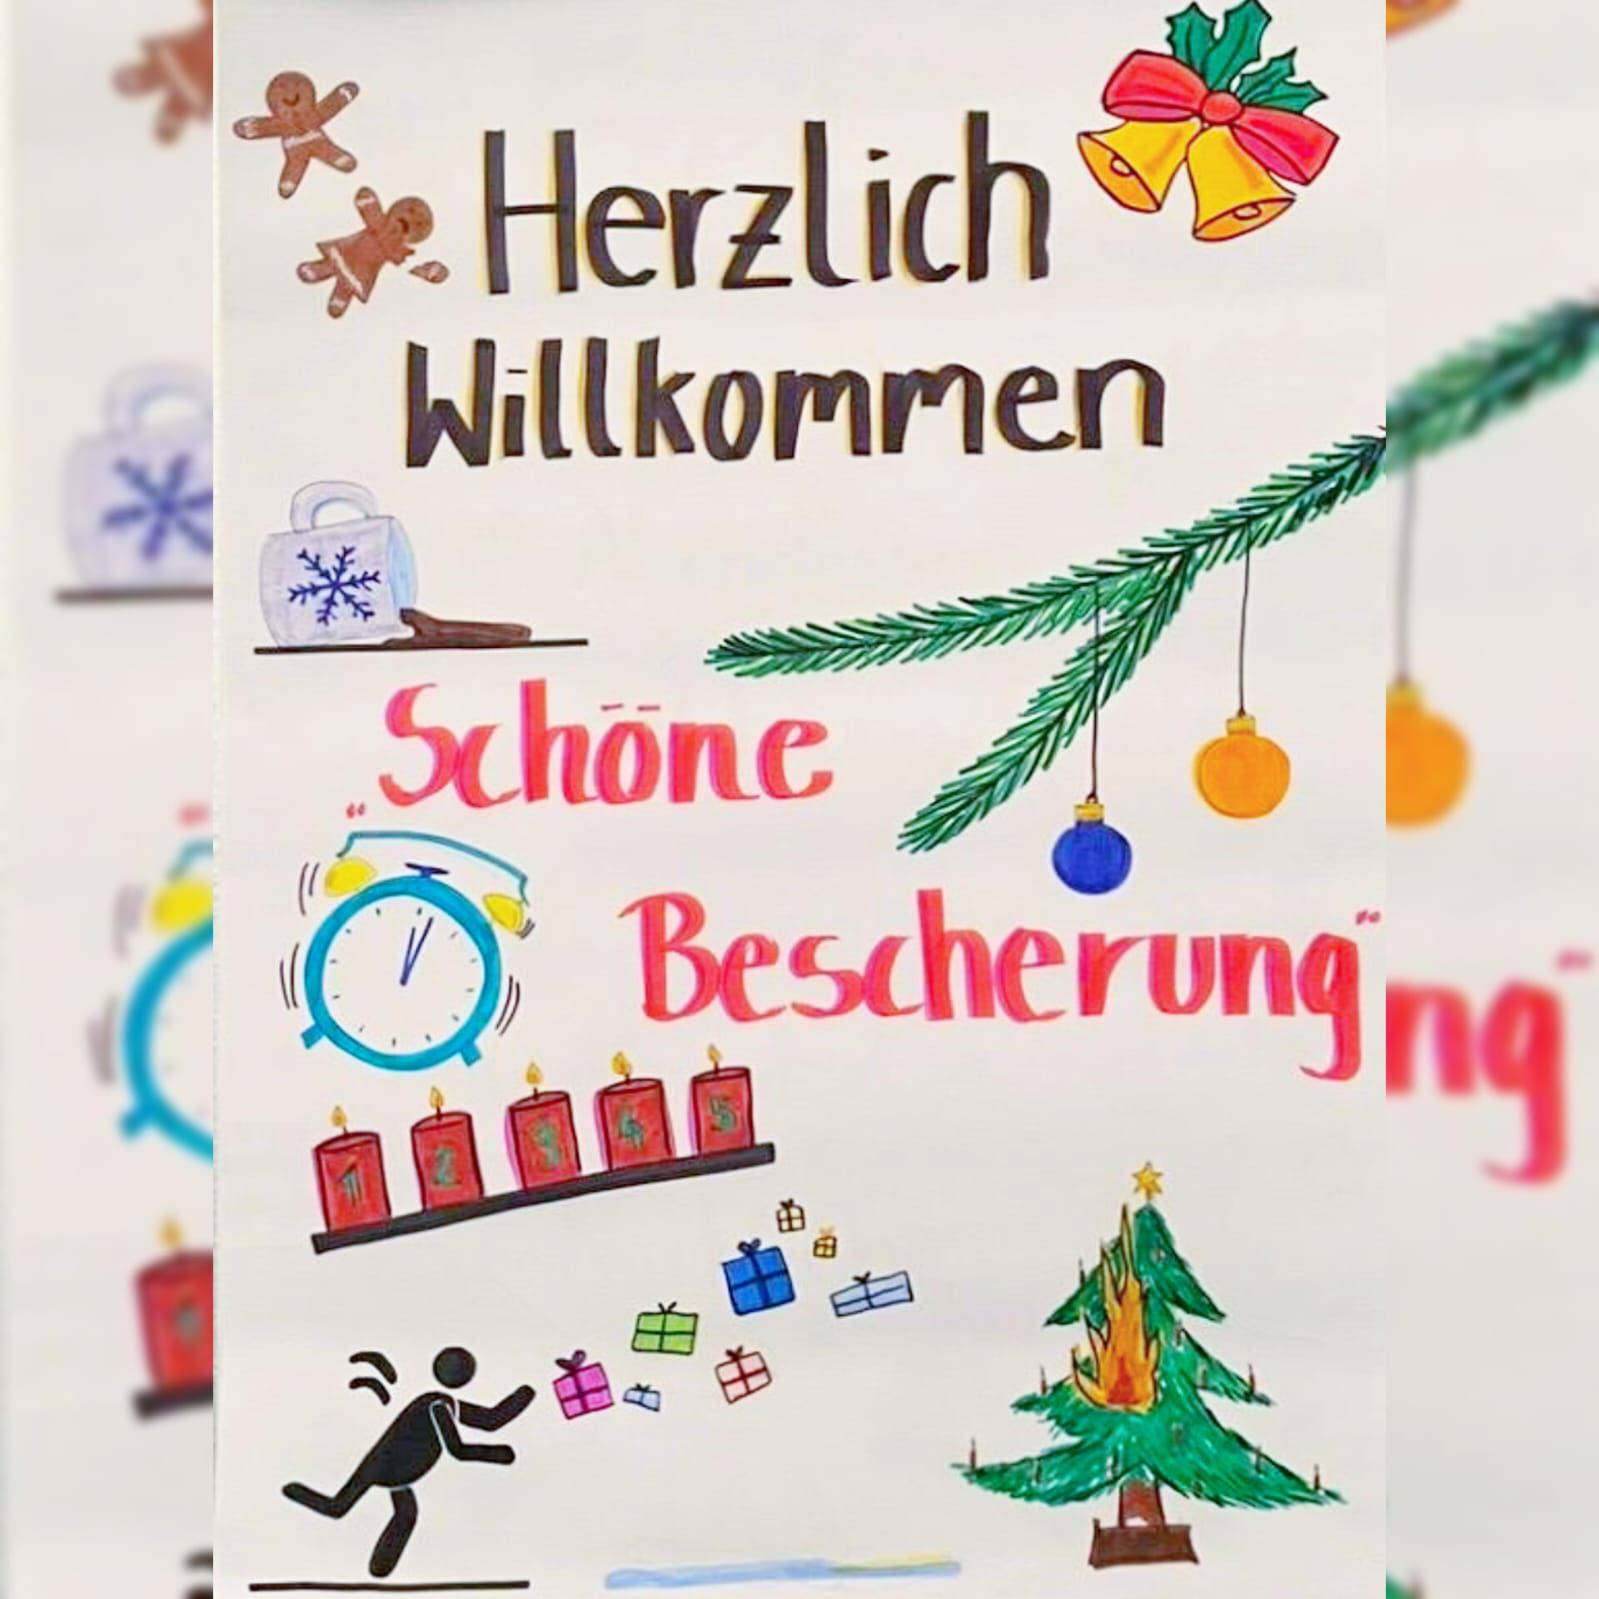 Herzlich
Willkommen
„Schöne
Bescherung“
1 2 3 4 5